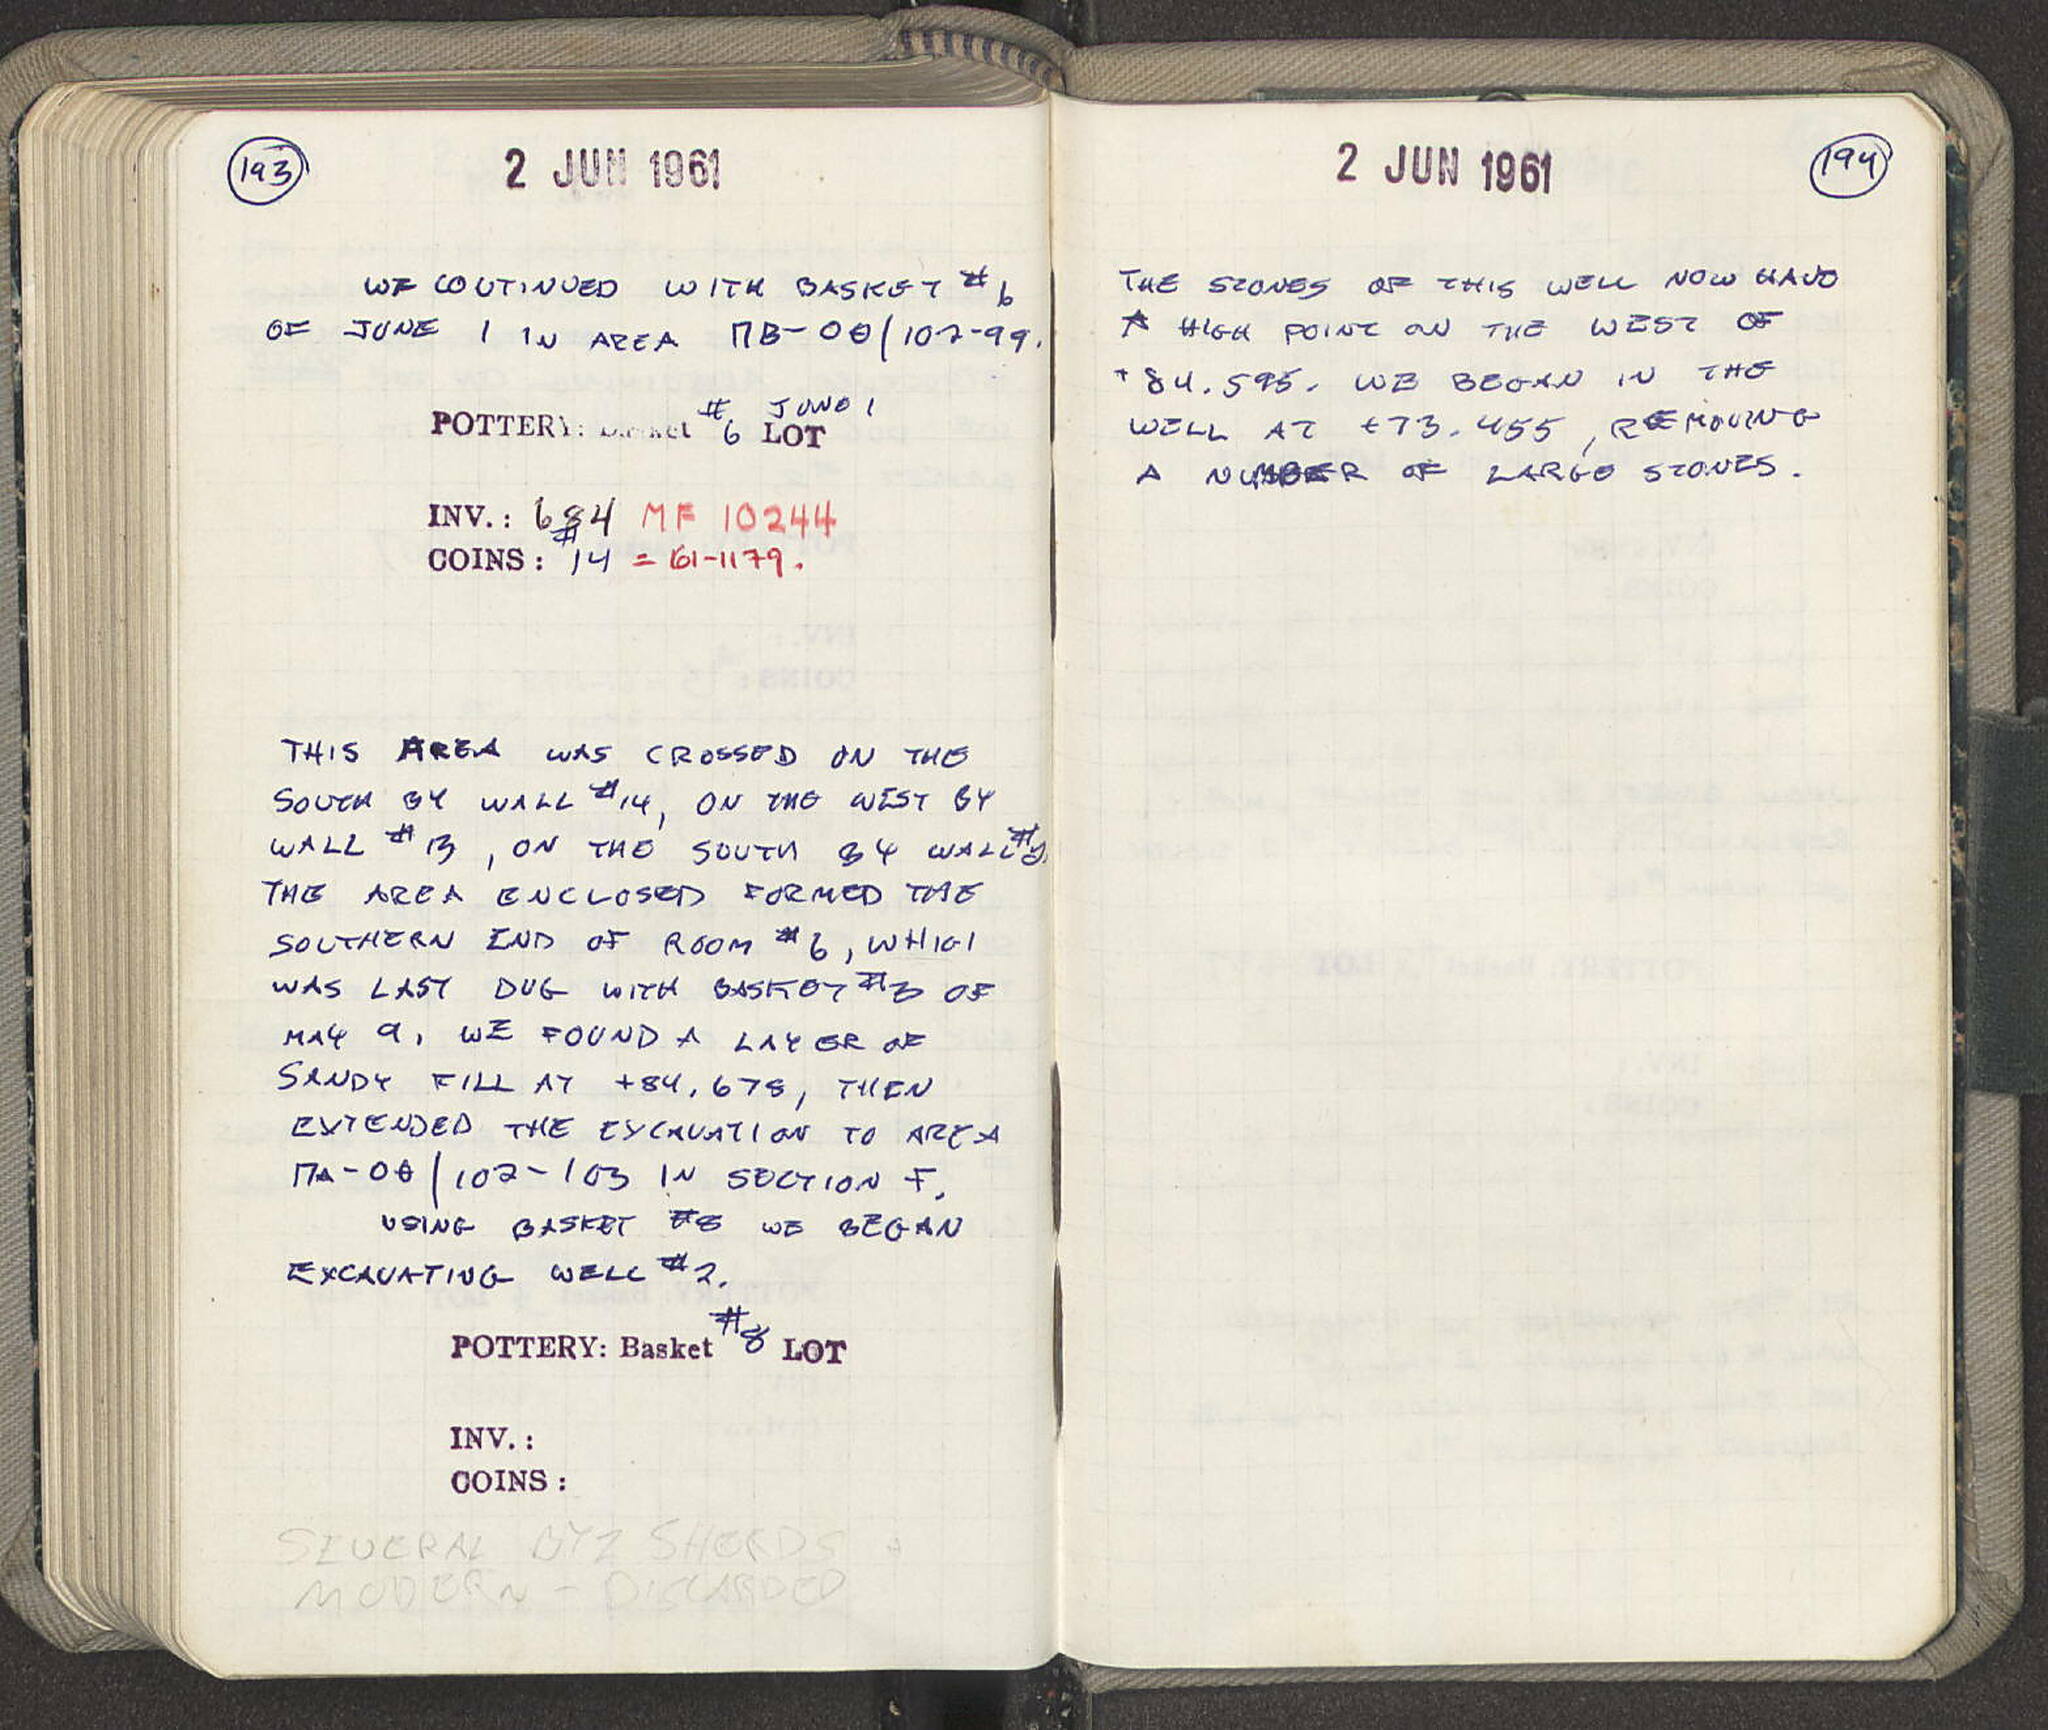 193
2 JUN 1961
WE CONTINUED WITH BASKET #6
OF JUNE 1 IN AREA ΠB-OΘ/102-99.
POTTERY: Basket #6 JUNE 1 LOT
INV.: 684 MF 10244
COINS: #14 = 61-1179.
THIS AREA WAS CROSSED ON THE
SOUTH BY WALL #14, ON THE WEST BY
WALL #13, ON THE SOUTH BY WALL
THE AREA ENCLOSED FORMED THE
SOUTHERN END OF ROOM #6, WHICH
WAS LAST DUG WITH BASKET #3 OF
MAY 9. WE FOUND A LAYER OF
SANDY FILL AT +84.678, THEN
EXTENDED THE EXCAVATION TO AREA
ΠA-OΘ/102-103 IN SECTION F.
USING BASKET #8 WE BEGAN
EXCAVATING WELL #2.
POTTERY: Basket #8 LOT
INV.:
COINS:
SEVERAL BYZ SHERDS +
MODERN - DISCARDED
194
2 JUN 1961
THE STONES OF THIS WELL NOW HAVE
A HIGH POINT ON THE WEST OF
+84.595. WE BEGAN IN THE
WELL AT +73.455, REMOVING
A NUMBER OF LARGE STONES.